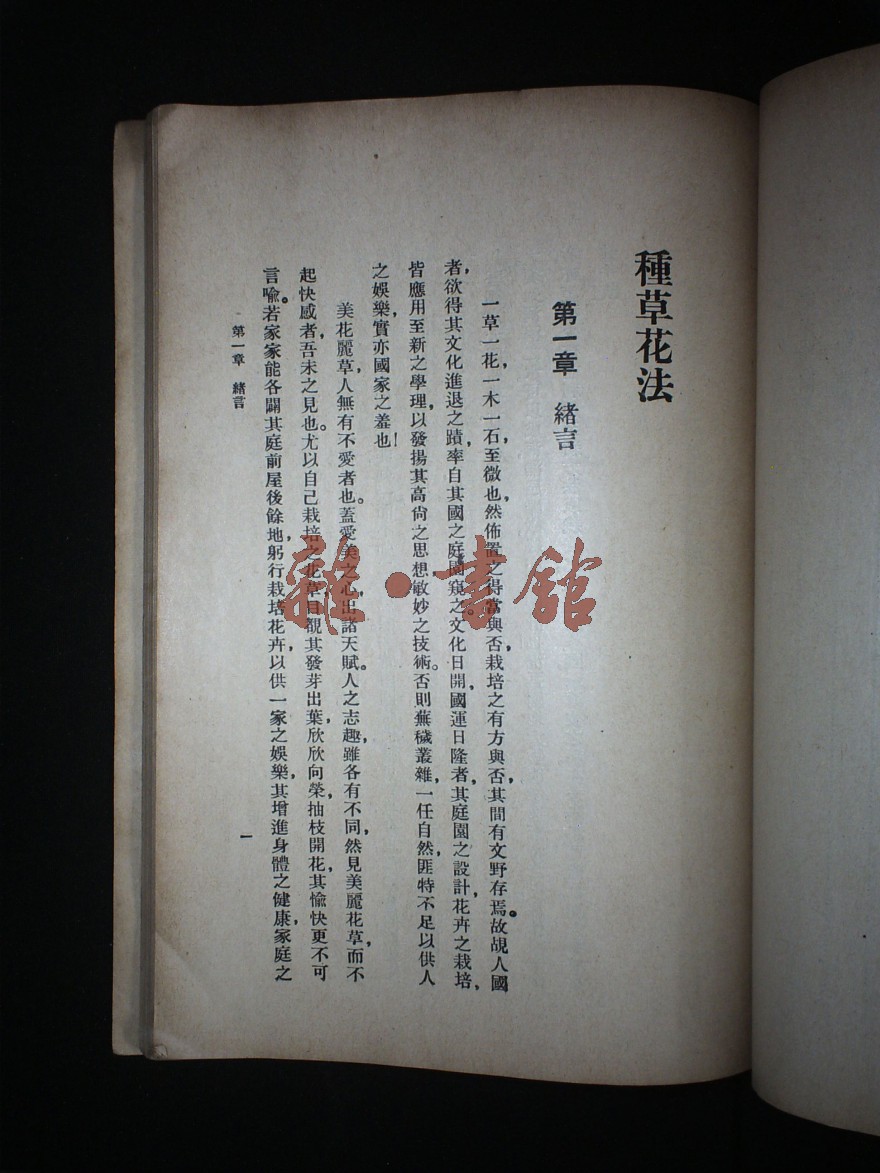 種草花法
第一章 緒言
一草一花一木一石至微也，然佈置之得當與否，栽培之有方與否，其間有文野存焉。故覘人國
者，欲得其文化進退之蹟，率自其國之庭園窺之。文化日開，國運日隆者，其庭園之設計，花卉之栽培，
皆應用至新之學理，以發揚其高尚之思想，敏妙之技術。否則蕪穢叢雜，一任自然，匪特不足以供人
之娛樂，實亦國家之羞也！
美花麗草，人無有不愛者也。蓋愛美之心，出諸天賦。人之志趣，雖各有不同，然見美麗花草，而不
起快感者，吾未之見也。尤以自己栽培之花草，目覩其發芽出葉，欣欣向榮，抽枝開花，其愉快更不可
言喻。若家家能各闢其庭前屋後餘地，躬行栽培花卉，以供一家之娛樂，其增進身體之健康，家庭之
第一章 緒言
一
雜·書館